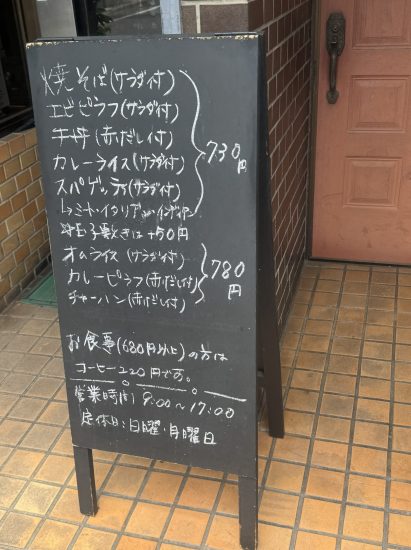 焼そば(サラダ付)
エビピラフ(サラダ付)
牛丼(赤だし付)
カレーライス(サラダ付)
スパゲッティ(サラダ付)
730円
ミート・イタリアン・インディアン
玉子敷きは+50円
オムライス(サラダ付)
カレーピラフ(赤だし付)
チャーハン(赤だし付)
780円
お食事(680円以上)の方は
コーヒー220円です。
営業時間 9:00~17:00
定休日:日曜・月曜日